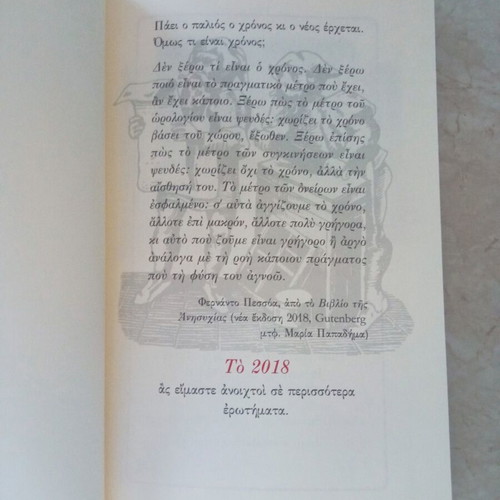 Πάει ο παλιός ο χρόνος κι ο νέος έρχεται.
Όμως τι είναι χρόνος;
Δὲν ξέρω τί εἶναι ὁ χρόνος. Δὲν ξέρω
ποιό εἶναι τὸ πραγματικὸ μέτρο ποὺ ἔχει,
ἂν ἔχει κάποιο. Ξέρω πὼς τὸ μέτρο τοῦ
ὡρολογίου εἶναι ψευδές: χωρίζει τὸ χρόνο
βάσει τοῦ χώρου, ἔξωθεν. Ξέρω ἐπίσης
πὼς τὸ μέτρο τῶν συγκινήσεων εἶναι
ψευδές: χωρίζει ὄχι τὸ χρόνο, ἀλλὰ τὴν
αἴσθησή του. Τὸ μέτρο τῶν ὀνείρων εἶναι
ἐσφαλμένο: σ' αὐτὰ ἀγγίζουμε τὸ χρόνο,
ἄλλοτε ἐπὶ μακρόν, ἄλλοτε πολὺ γρήγορα,
κι αὐτὸ ποὺ ζοῦμε εἶναι γρήγορο ἢ ἀργὸ
ἀνάλογα μὲ τὴ ροὴ κάποιου πράγματος
ποὺ τὴ φύση του ἀγνοῶ.
Φερνάντο Πεσσόα, ἀπὸ τὸ Βιβλίο τῆς
Ἀνησυχίας (νέα ἔκδοση 2018, Gutenberg
μτφ. Μαρία Παπαδήμα)
Τὸ 2018
ἂς εἴμαστε ἀνοιχτοὶ σὲ περισσότερα
ἐρωτήματα.